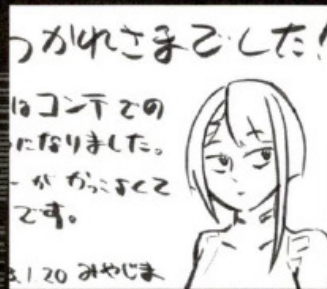 つかれさまでした!
はコンテでの
になりました。
ーがかっこよくて
です。
3.1.20 みやじま